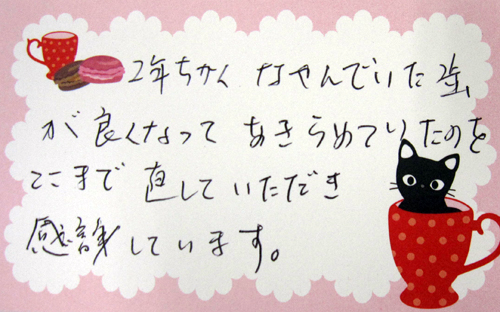 2年ちかく なやんでいた
が 良くなって あきらめていたのを
ここまで 直していただき
感謝しています。